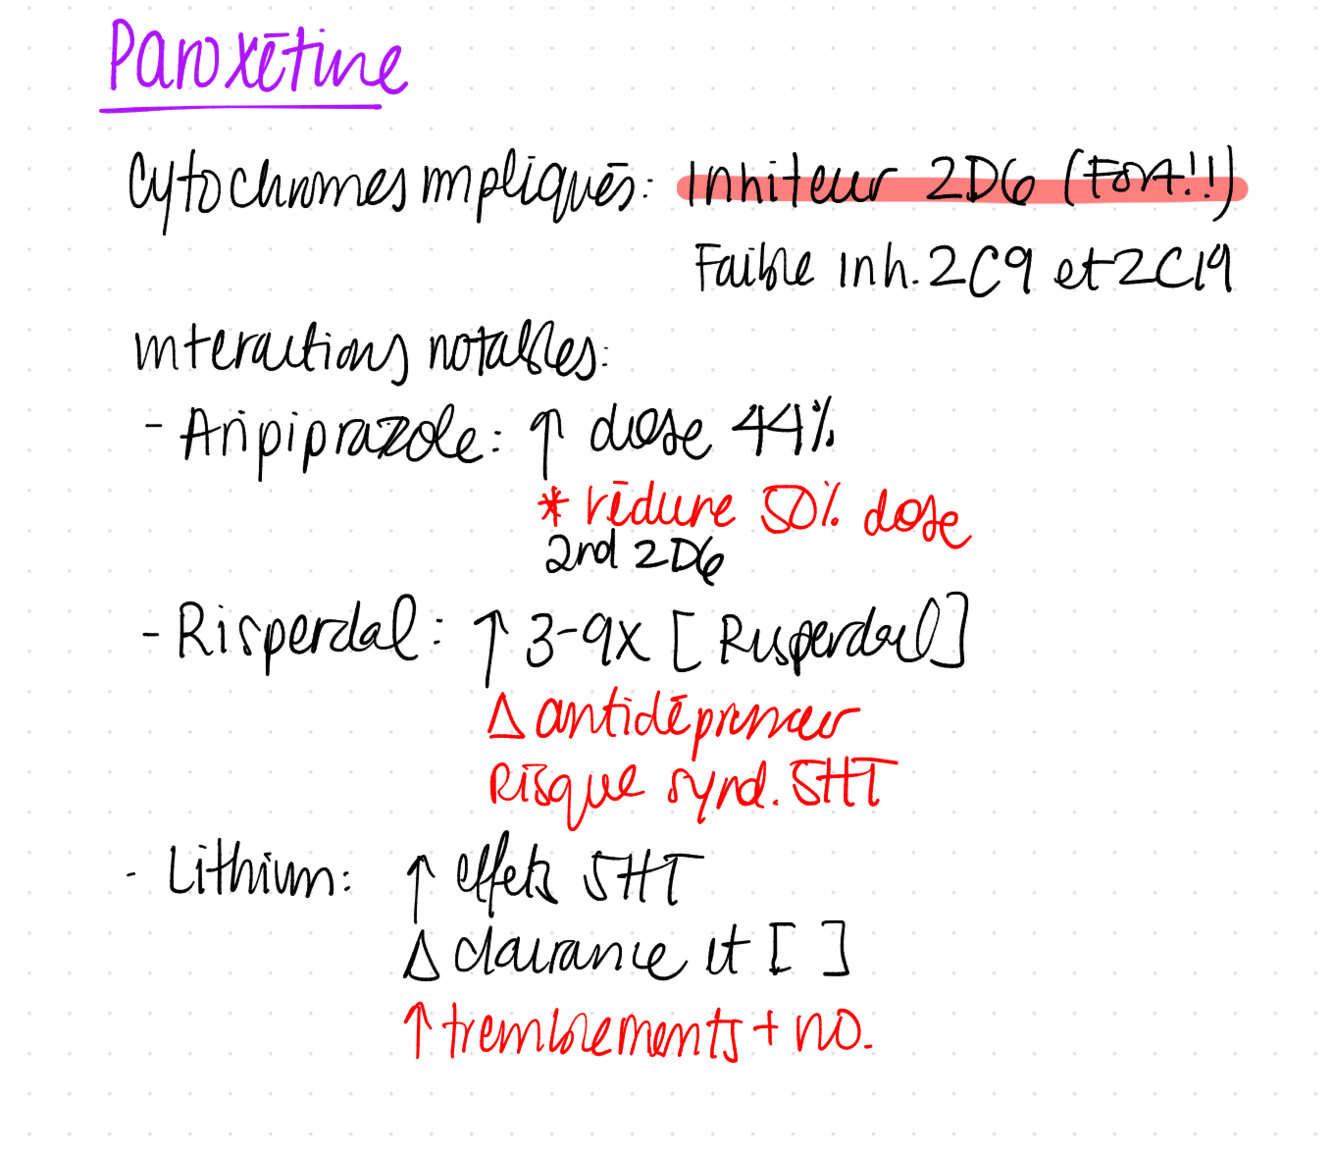 Paroxétine
Cytochromes impliqués: Inhiteur 2D6 (FORT!!)
Faible inh. 2C9 et 2C19
interactions notables:
- Aripiprazole: ↑ dose 44%
* réduire 50% dose
2nd 2D6
- Risperdal: ↑ 3-9x [Risperdal]
Δ antidépresseur
Risque synd. 5HT
- Lithium: ↑ effets 5HT
Δ clairance et [ ]
↑ tremblements + no.